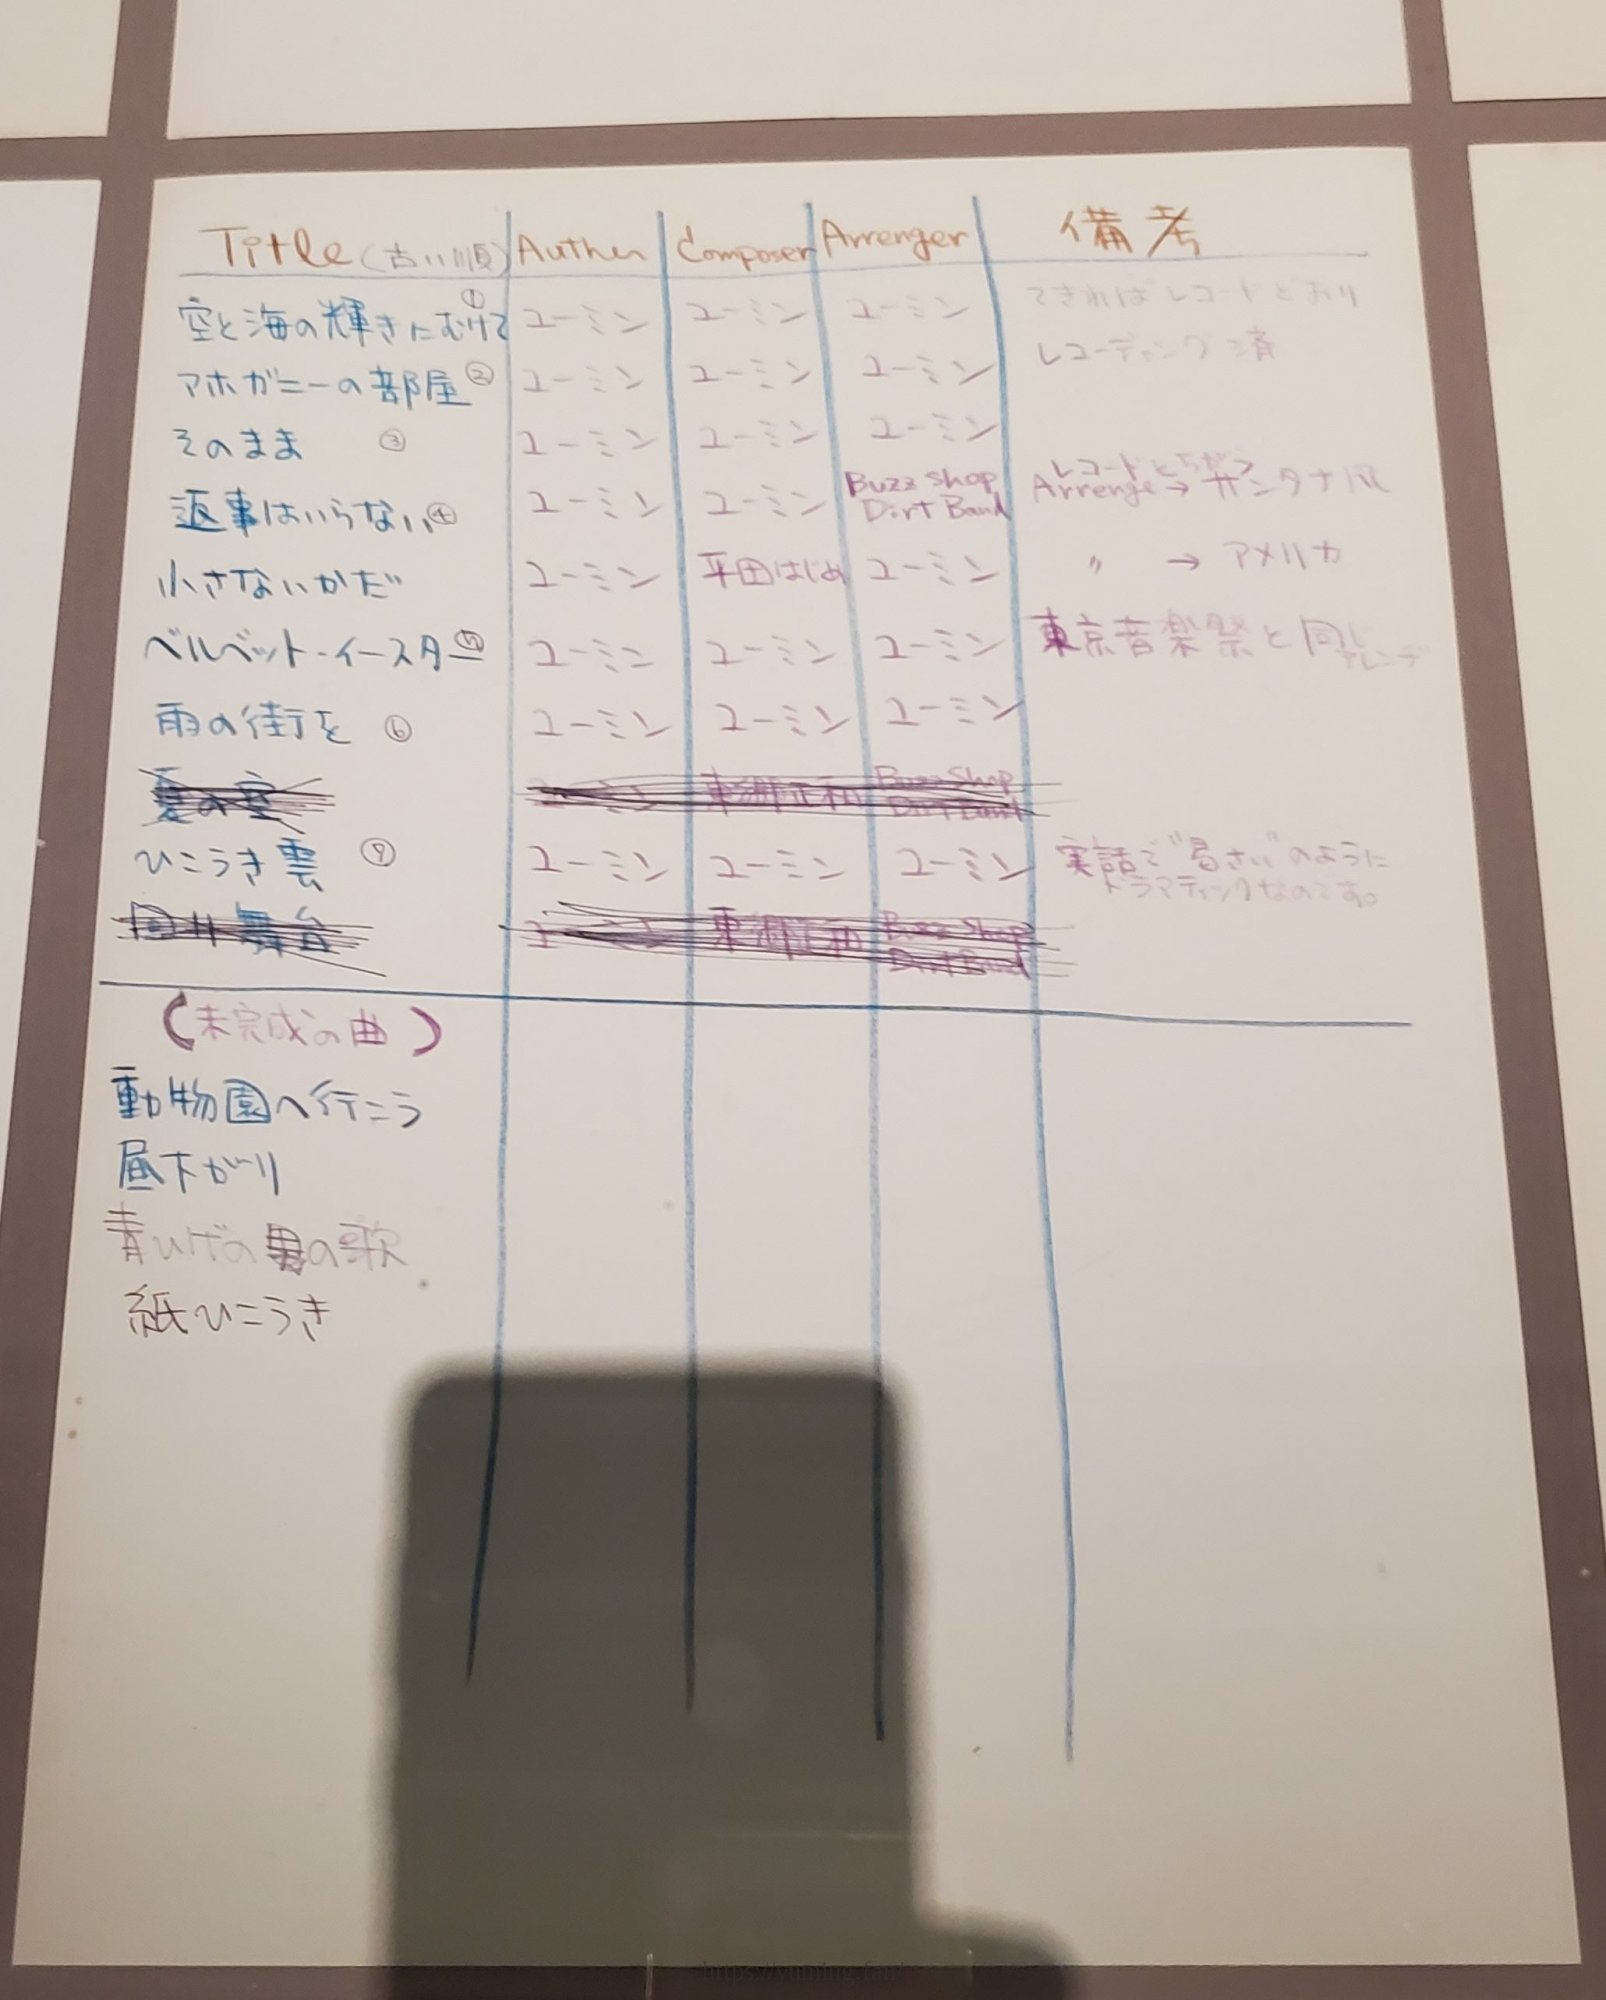 Title (古い順) Auther Composer Arrenger 備考
空と海の輝きにむけて ① ユーミン ユーミン ユーミン できればレコードどおり
マホガニーの部屋 ② ユーミン ユーミン ユーミン レコーディング済
そのまま ③ ユーミン ユーミン ユーミン
返事はいらない ④ ユーミン ユーミン Buzz Shop Dirt Band レコードとちがう
Arrenge→サンタナ風
小さないかだ ユーミン 平田はじめ ユーミン 〃 → アメリカ
ベルベット・イースター ⑤ ユーミン ユーミン ユーミン 東京音楽祭と同じ
アレンヂ
雨の街を ⑥ ユーミン ユーミン ユーミン
夏の空 東郷正和 Buzz Shop Dirt Band
ひこうき雲 ユーミン ユーミン ユーミン 実話で のように
ドラマティックなのです。
舞台 東郷正和 Buzz Shop Dirt Band
(未完成の曲)
動物園へ行こう
昼下がり
青ひげの男の歌
紙ひこうき
https://yuming.fan/